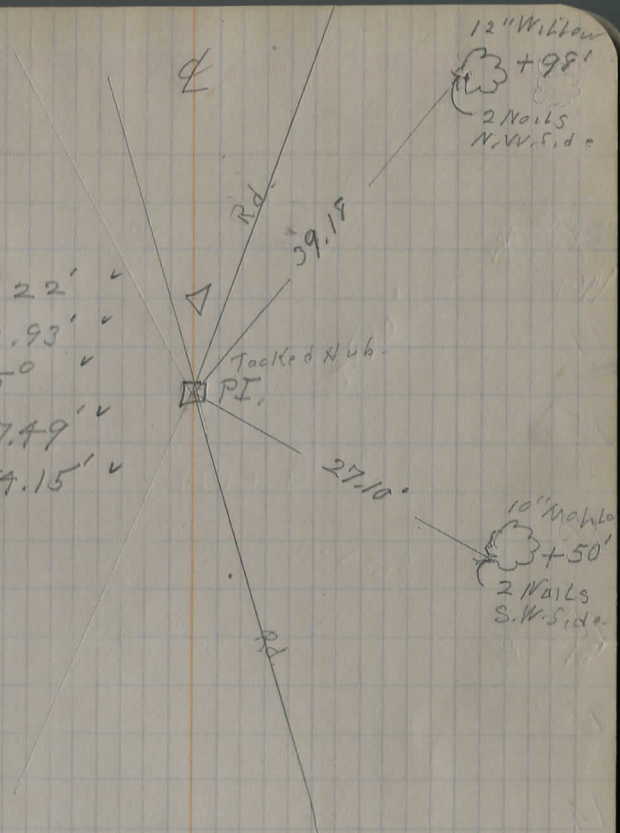 12" Willow
℄
+98'
2 Nails
N.W. Side
Rd.
39.18
22' ✓
.93' ✓
5° ✓
7.49' ✓
4.15' ✓
Δ
Tacked Hub.
P.I.
27.10'
10" Maple
+50'
2 Nails
S.W. Side.
Rd.